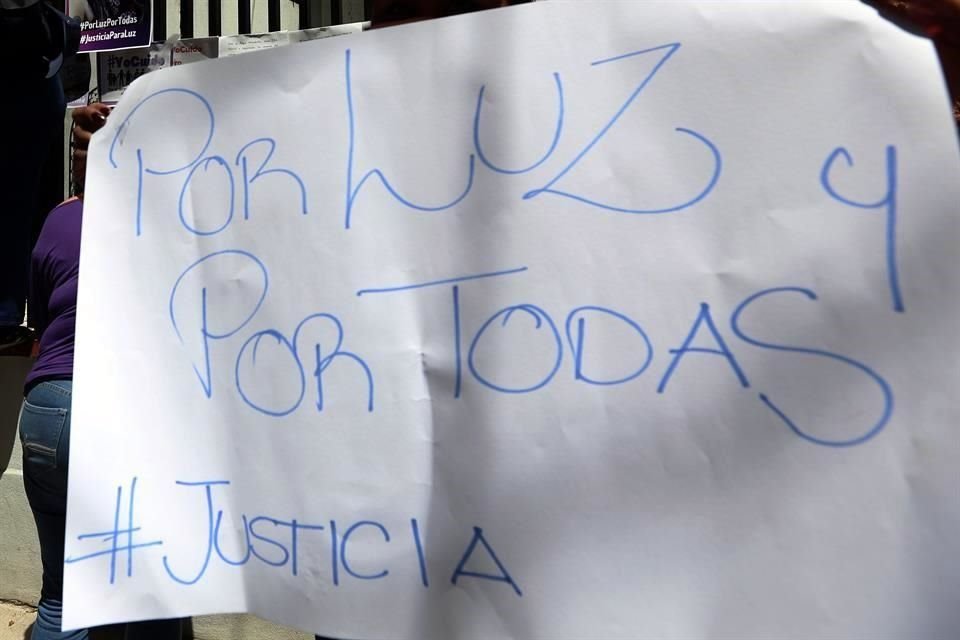 #PorLuzPorTodas
#JusticiaParaLuz
#YoCuido
POR LUZ Y
POR TODAS
#JUSTICIA